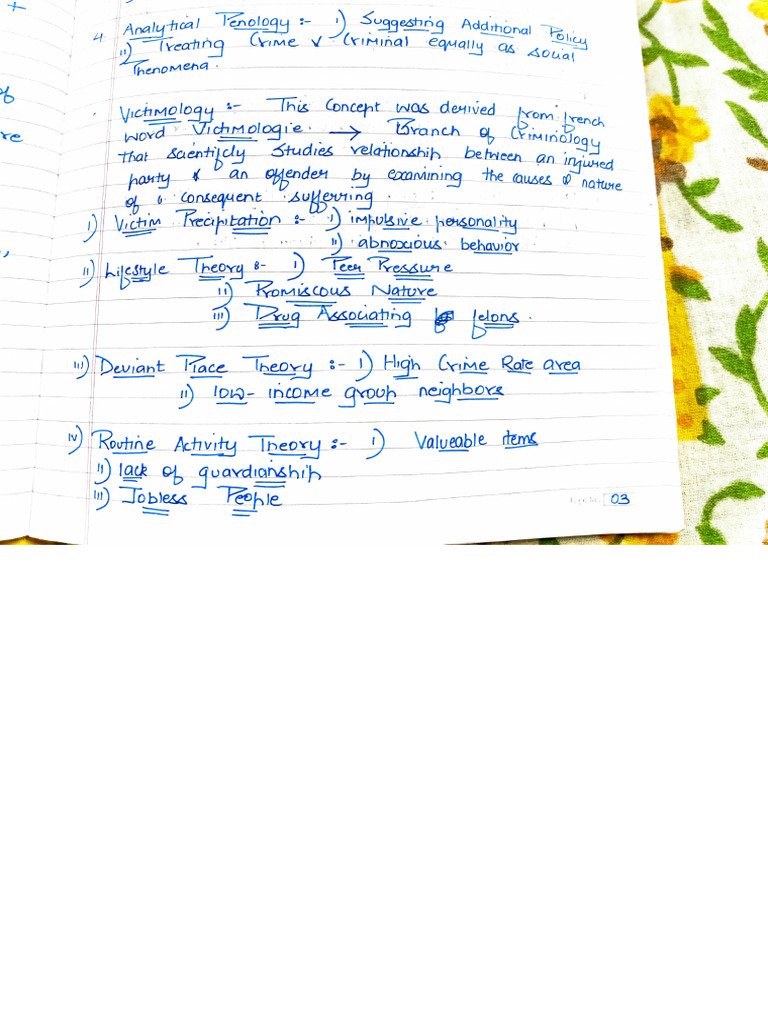 +
of
re
,
4 Analytical Penology :- i) Suggesting Additional Policy
ii) Treating Crime & Criminal equally as social
Phenomena.
Victimology :- This Concept was derived from french
word Victimologie → Branch of Criminology
that scientifcly studies relationship between an injured
party & an offender by examining the causes & nature
of consequent sufferring.
i) Victim Precipitation :- i) impulsive personality
ii) abnoxious behavior
ii) Lifestyle Theory :- i) Peer Pressure
ii) Promiscous Nature
iii) Drug Associating felons.
iii) Deviant Place Theory :- i) High Crime Rate area
ii) low-income group neighbors
iv) Routine Activity Theory :- i) Valueable items
ii) lack of guardianship
iii) Jobless People
03